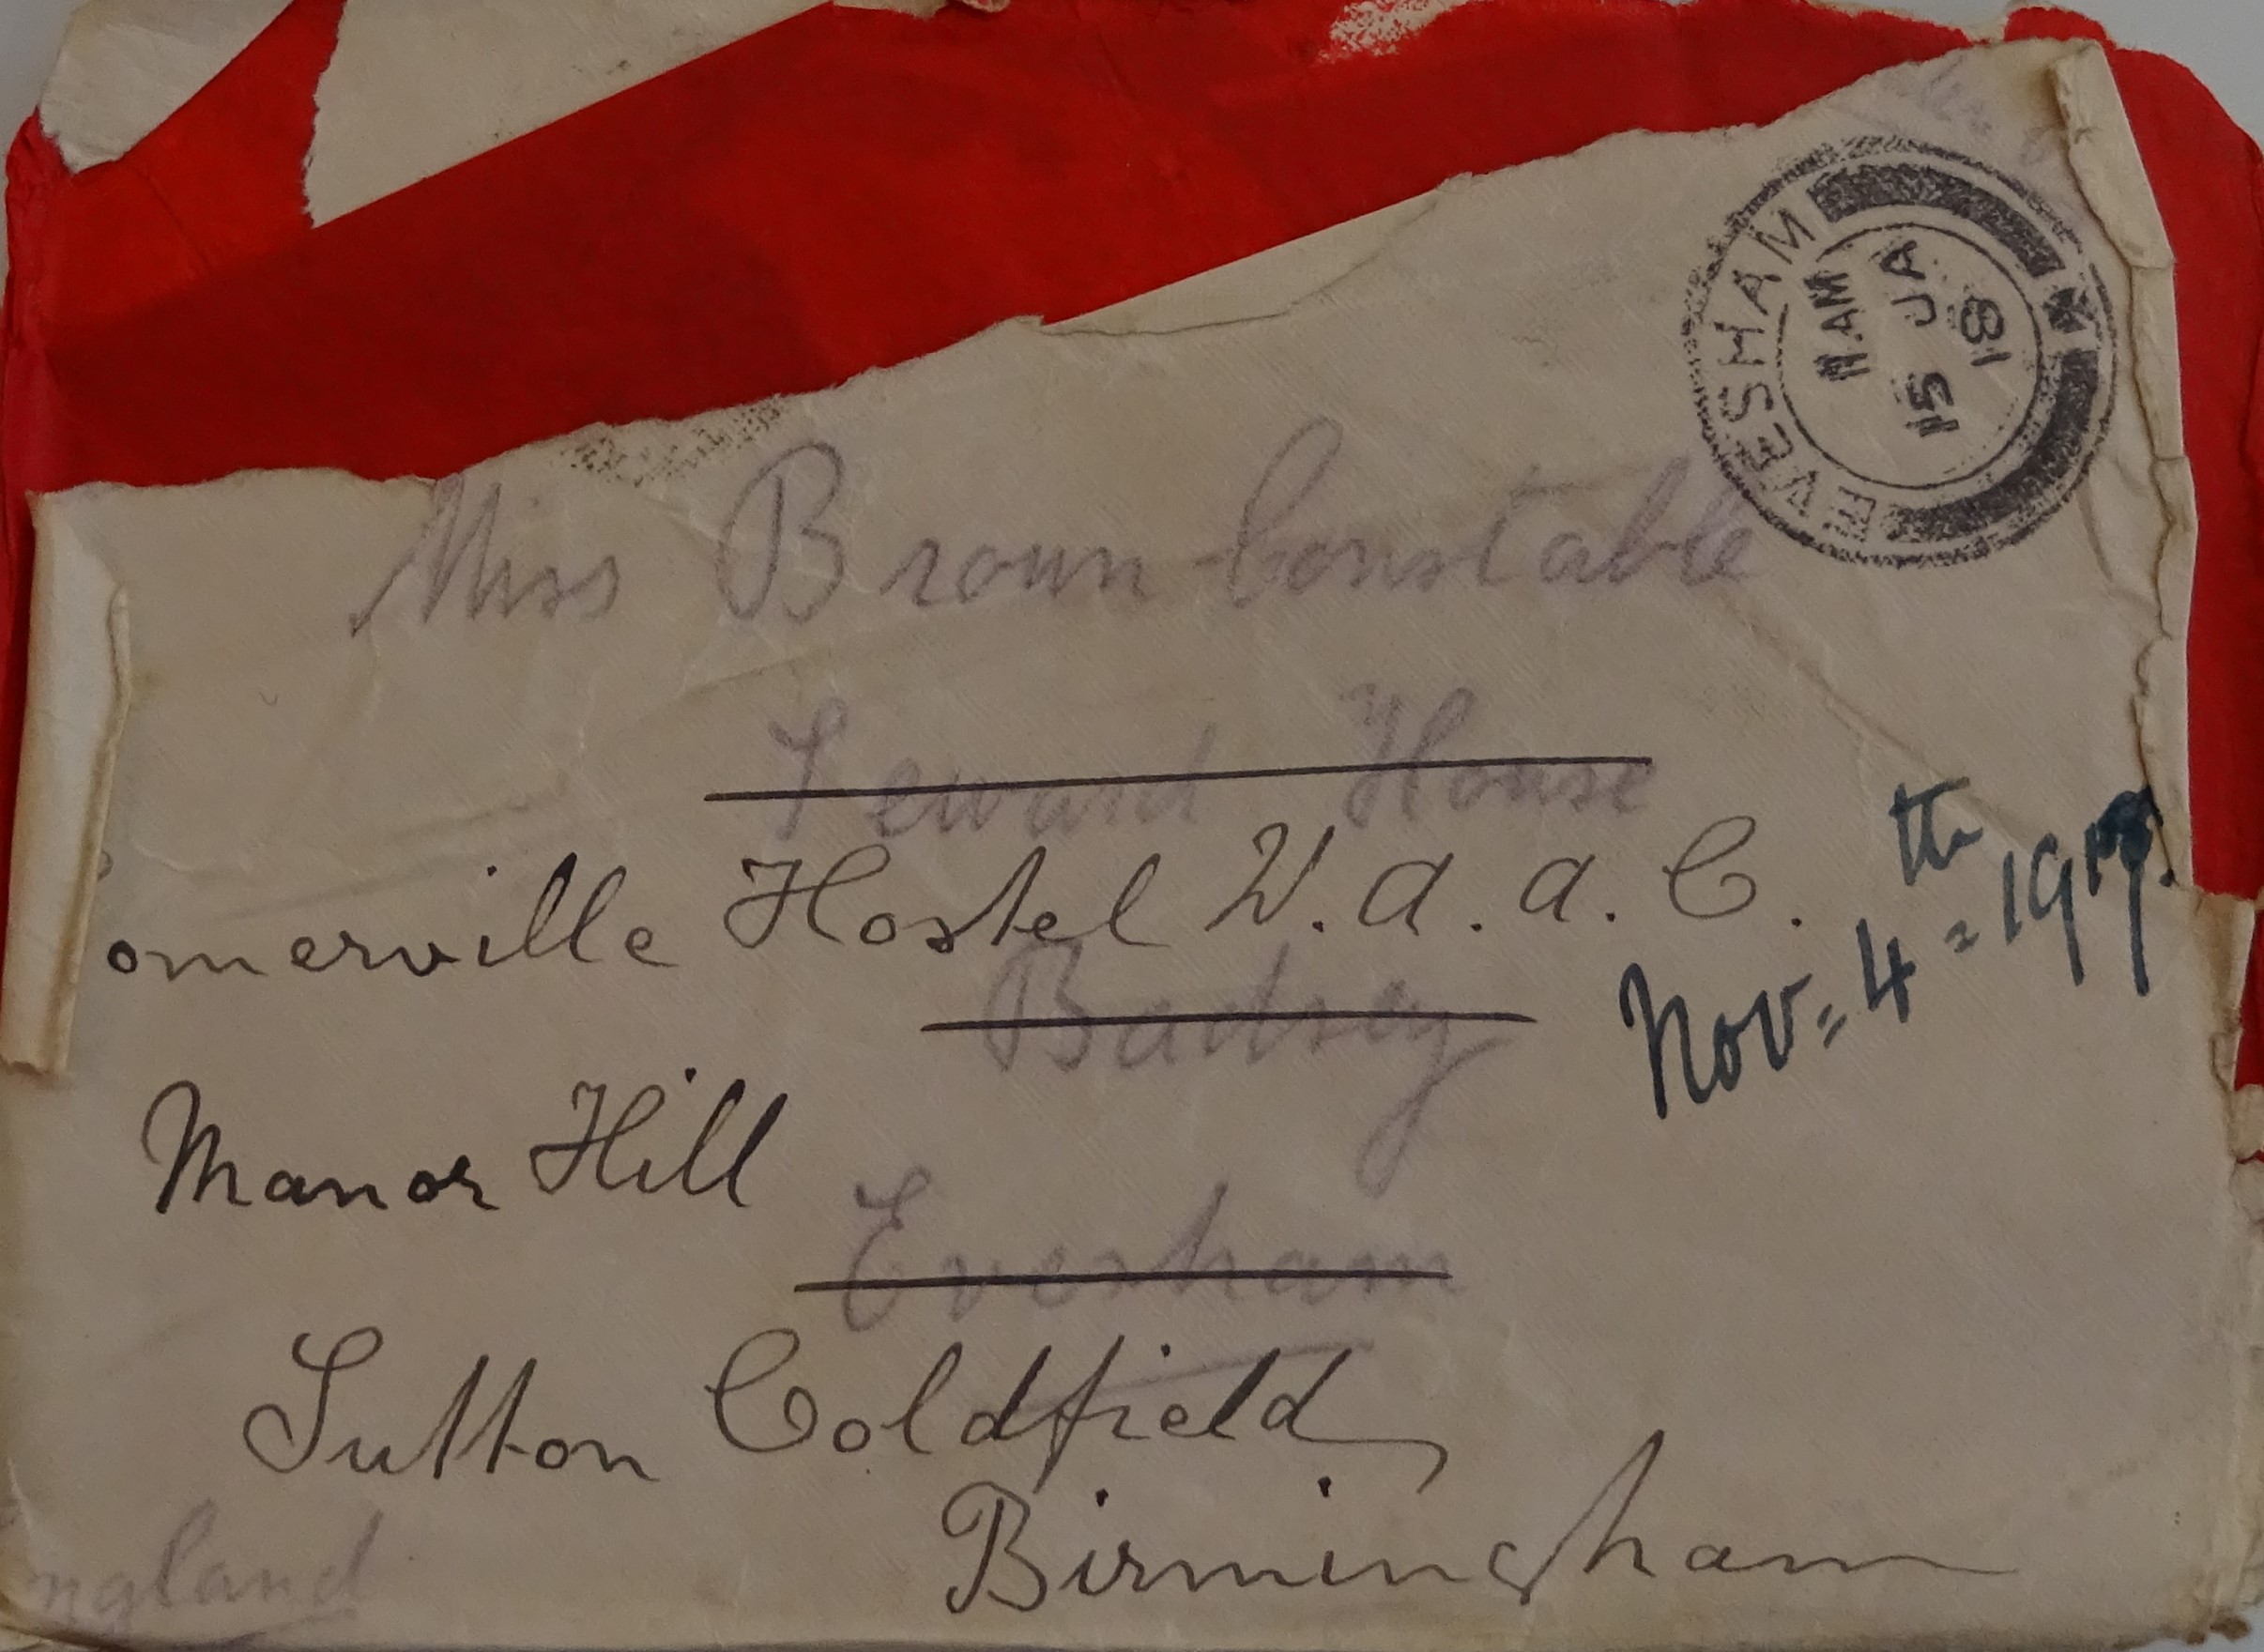 EVESHAM
11 AM
15 JA
18
Miss Broun-Constable
Seward House
omerville Hostel W.A.A.C.
Nov= 4th = 1917.
Badsey
Manor Hill
Evesham
Sutton Coldfield,
Birmingham
ngland